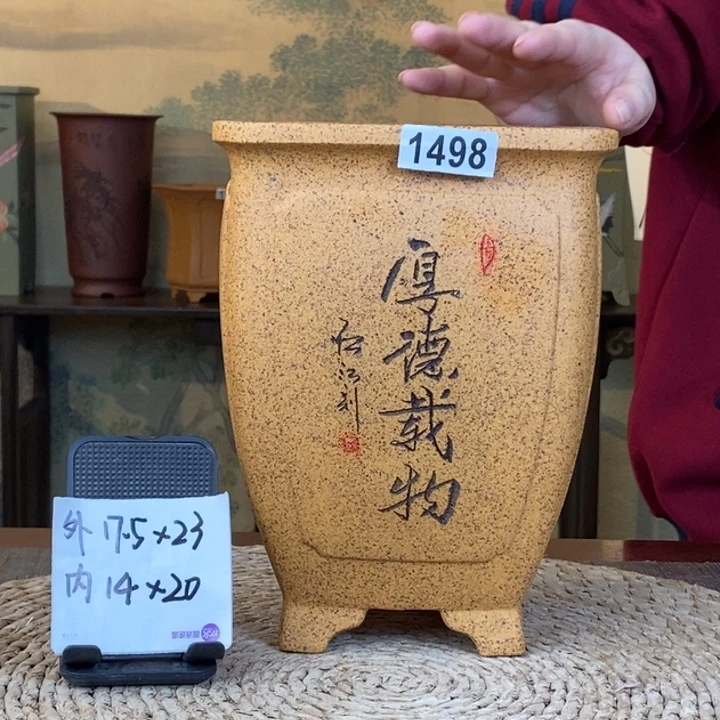 1498
厚德载物
江刻
外 17.5×23
内 14×20